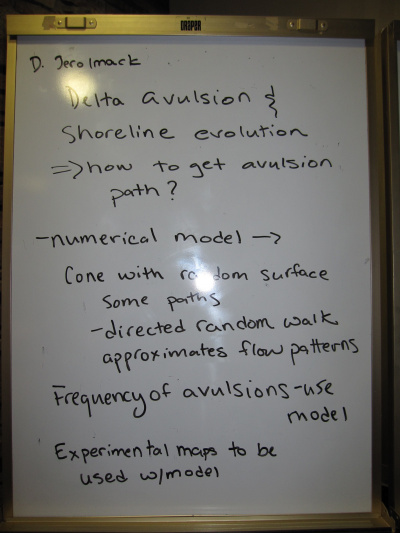 DRAPER
D. Jerolmack
Delta avulsion &
Shoreline evolution
=> how to get avulsion
path?
-numerical model ->
Cone with random surface
Some paths
-directed random walk
approximates flow patterns
Frequency of avulsions-use
model
Experimental maps to be
used w/model